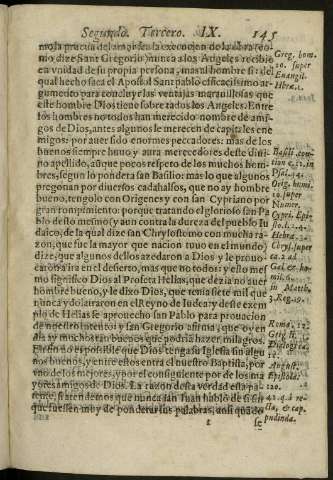 Segundo. Tercero. IX. 145
mo la prueua del amor sea la execucion de la obra (co
mo dize San Gregorio) nunca a los Angeles recibio
en vnidad de su propia persona, mas al hombre si: del
qual hecho saca el Apostol San pablo eficacissimo ar-
gumento para concluyr las ventajas marauillosas que
este hombre Dios tiene sobre todos los Angeles. Entre
los hombres no todos han merecido nombre de ami-
gos de Dios, antes algunos le merecen de capitales ene
migos: por auer sido enormes peccadores: mas de los
buenos siempre huuo y aura merecedores deste diui-
no apellido, aũque pocos respeto de los muchos hom-
bres, segun lo pondera san Basilio: mas lo que algunos
pregonan por diuersos cadahalsos, que no ay hombre
bueno, tengolo con Origenes y con san Cypriano por
gran rompimiento: porque tratando el glorioso san Pa
blo desto mesmo y aun contra la dureza del pueblo Iu
daico, de la qual dize san Chrysostomo con mucha ra-
zon, que fue la mayor que nacion tuuo en el mundo)
dize, que algunos dellos azedaron a Dios y le prouo-
caron a ira en el desierto, mas que no todos: y esto mes
mo significo Dios al Profeta Helias, que dezia no auer
hombre bueno, y le dixo Dios, que tenia siete mil que
nunca ydolatraron en el Reyno de Iudea: y deste exem
plo de Helias se aprouecho san Pablo para prouacion
de nuestro intento: y san Gregorio afirma, que oy en
dia ay muchos tan buenos que podria hazer milagros.
Pues no es possible que Dios tenga su Iglesia sin algu
nos buenos, y entre ellos entra el nuestro Baptista, por
vno de los mejores, y por el consiguiente por de los ma
yores amigos de Dios. La razon desta verdad esta pa-
tente, si atendemos que nunca san Iuan hablo de si en
que fuessen muy de ponderar sus palabras, assi quãdo
t se
Greg. hom.
super
Euangil.
Hebræ. 1.
Basili. con-
tione 12. in
Psal. 14.
Orig. homi.
10. super
Numer.
Cypri. Epis
to. li. 4.
Hebræ.
Chrysi. super
ca. 2. ad
Gal. &. ho.
mil. 6.
in Matth.
3. Reg. 19.
Roma. 11.
Greg. li. 1.
Dialogo.
12.
August.
Epistola.
120.